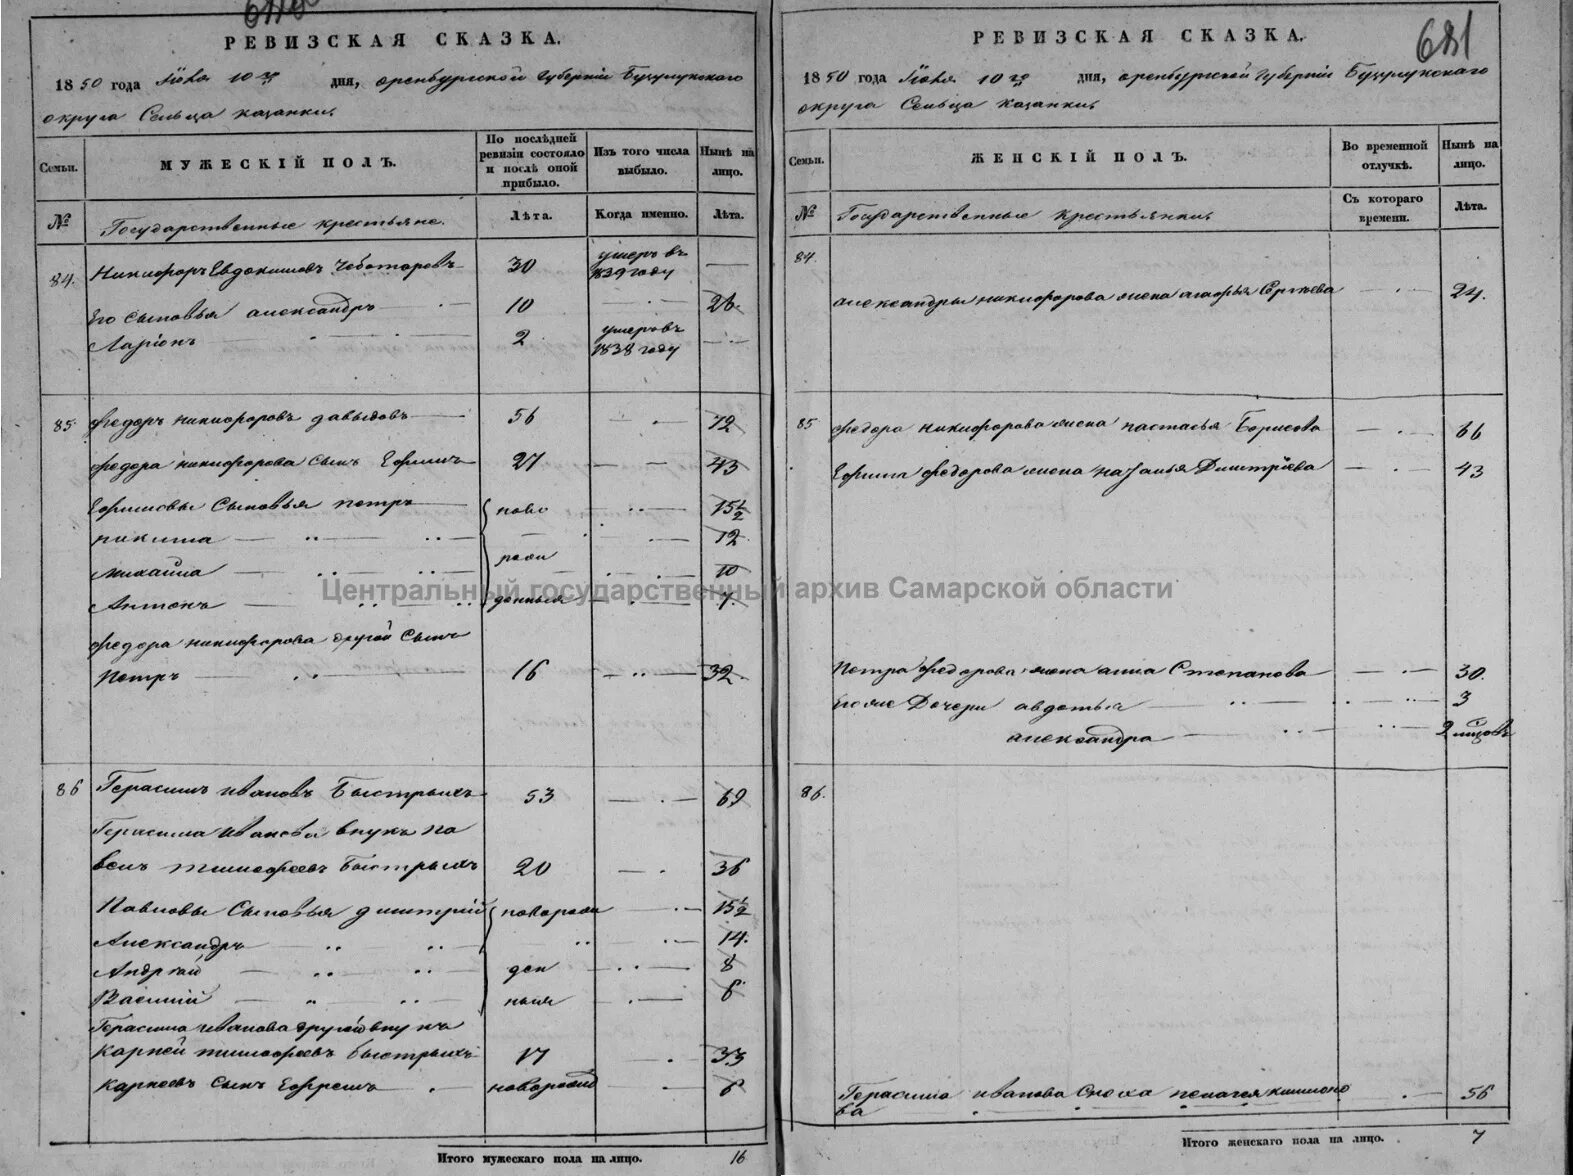 РЕВИЗСКАЯ СКАЗКА.
1850 года Июня 10го дня, оренбургской губерніи Бузулукскаго
округа Сельца казанки.
Семьи.
МУЖЕСКІЙ ПОЛЪ.
По послѣдней ревизіи состояло и послѣ оной прибыло.
Изъ того числа выбыло.
Нынѣ на лицо.
№
Государственные крестьяне.
Лѣта.
Когда именно.
Лѣта.
84. Никифоръ Евдокимовъ Чеботаревъ 30 умеръ въ 1839 году —
Его сыновья александръ — 10 — 26.
Ларіонъ — 2 умеръ въ 1838 году —
85. Федоръ никифоровъ давыдовъ — 56 — 72
Федора никифорова сынъ Ефимъ 27 — 43
Ефимовы сыновья петръ — ново — 15½
никита — — 12
михайла — роли — 10
Антонъ — денныя — 7.
Федора никифорова другой сынъ
Петръ — 16 — 32.
86 Герасимъ ивановъ Быстрыхъ 53 — 69
Герасима иванова внукъ па
велъ тимофеевъ Быстрыхъ 20 — 36
Павловы сыновья дмитрій новорож — 15½
Александръ — 14.
Андрѣй — ден — 8
Василій — ныя — 6
Герасима иванова другой внукъ
карпей тимофеевъ быстрыхъ 17 — 33
карпеевъ сынъ Ефремъ — новорожд — 6
Итого мужескаго пола на лицо. 16
681
РЕВИЗСКАЯ СКАЗКА.
1850 года Июня 10го дня, оренбургской губерніи Бузулукскаго
округа Сельца казанки.
Семьи.
ЖЕНСКІЙ ПОЛЪ.
Во временной отлучкѣ.
Нынѣ на лицо.
№
Государственные крестьянки.
Съ котораго времени.
Лѣта.
84.
александры никифорова жена агафья Сергѣева — 24.
85 федора никифорова жена настасья Борисова — 66
Ефима федорова жена наталья Дмитріева — 43
Петра федорова жена анна Степанова — 30.
дочери авдотья — 3
александра —
86.
Герасима иванова сноха пелагея
ва — 56
Итого женскаго пола на лицо. 7
Центральный государственный архив Самарской области